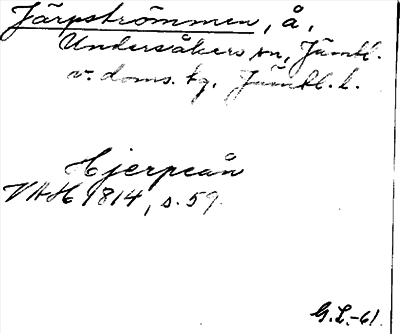 Järpströmmen, å,
Undersåkers sn, Jämtl.
v. doms. tg, Jämtl. l.
Hjerpeån
VAH 1814, s. 59.
G.L.-61.